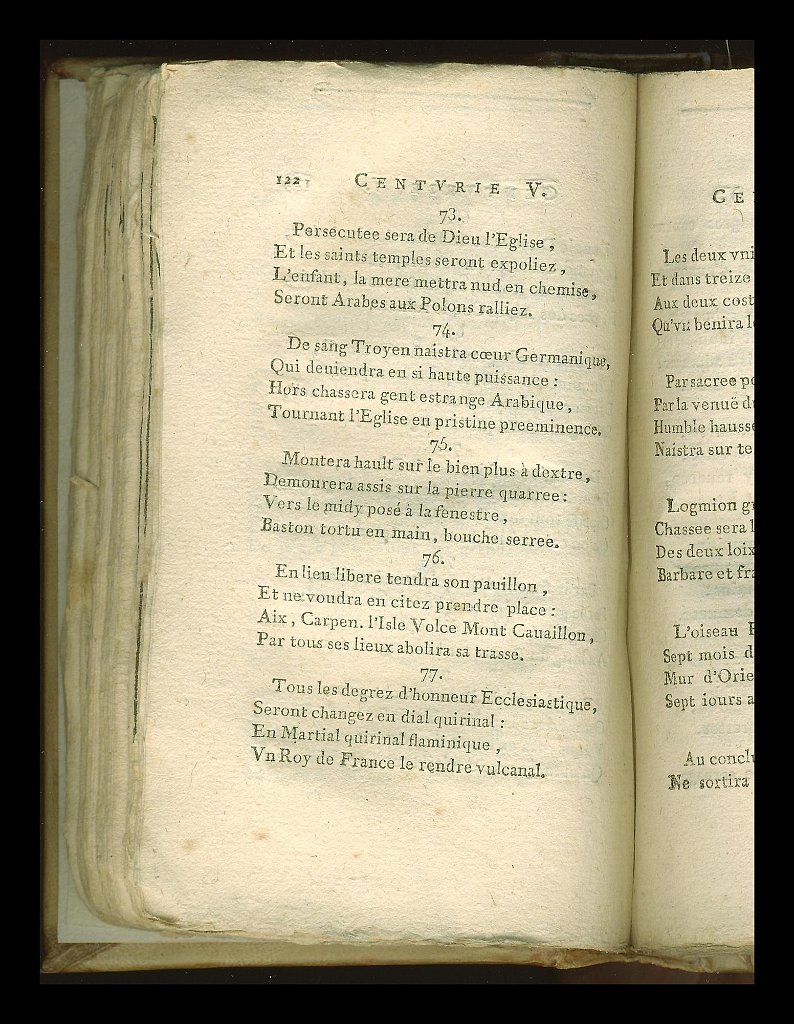 122 CENTVRIE V.
73.
Persecutee sera de Dieu l'Eglise ,
Et les saints temples seront expoliez ,
L'enfant , la mere mettra nud en chemise ,
Seront Arabes aux Polons ralliez .
74.
De sang Troyen naistra cœur Germanique ,
Qui deuiendra en si haute puissance :
Hors chassera gent estrange Arabique ,
Tournant l'Eglise en pristine preeminence .
75.
Montera hault sur le bien plus à dextre ,
Demourera assis sur la pierre quarree :
Vers le midy posé à la fenestre ,
Baston tortu en main , bouche serree .
76.
En lieu libere tendra son pauillon ,
Et ne voudra en citez prendre place :
Aix , Carpen . l'Isle Volce Mont Cauaillon ,
Par tous ses lieux abolira sa trasse .
77.
Tous les degrez d'honneur Ecclesiastique ,
Seront changez en dial quirinal :
En Martial quirinal flaminique ,
Vn Roy de France le rendre vulcanal .
CE
Les deux vni
Et dans treize
Aux deux cost
Qu'vn benira l
Par sacree po
Par la venuë d
Humble hausse
Naistra sur te
Logmion g
Chassee sera l
Des deux loix
Barbare et fra
L'oiseau
Sept mois d
Mur d'Orie
Sept iours a
Au conclu
Ne sortira